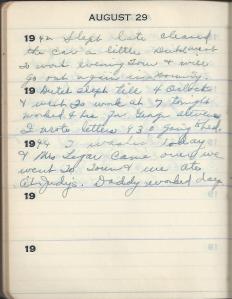 AUGUST 29
1942 Slept late cleaned
the car a little Dutch went
to work evening Tour & will
go out again in morning.
19 Dutch Slept till 4 O clock
& went to work at 7 tonight
worked 4 hrs for
I wrote letters 9 30 going to bed.
1944 I washed today
& Mrs Logar came over we
went to Town & we ate
at Judy's. Daddy worked day
19
19